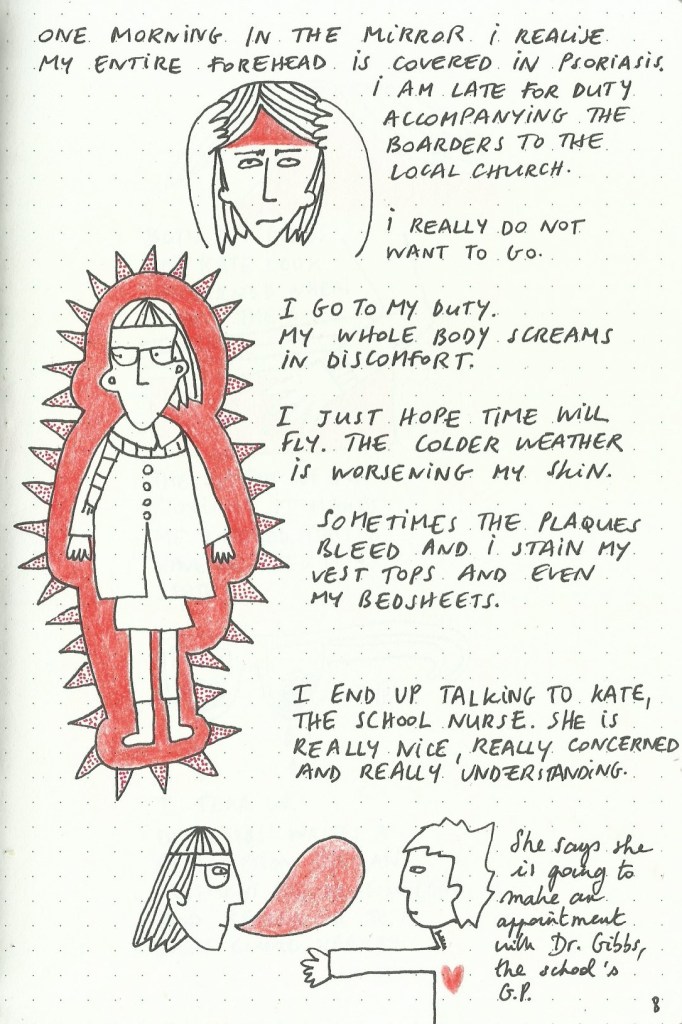 ONE MORNING IN THE MIRROR I REALISE
MY ENTIRE FOREHEAD IS COVERED IN PSORIASIS.
I AM LATE FOR DUTY
ACCOMPANYING THE
BOARDERS TO THE
LOCAL CHURCH.
I REALLY DO NOT
WANT TO GO.
I GO TO MY DUTY.
MY WHOLE BODY SCREAMS
IN DISCOMFORT.
I JUST HOPE TIME WILL
FLY. THE COLDER WEATHER
IS WORSENING MY SKIN.
SOMETIMES THE PLAQUES
BLEED AND I STAIN MY
VEST TOPS AND EVEN
MY BEDSHEETS.
I END UP TALKING TO KATE,
THE SCHOOL NURSE. SHE IS
REALLY NICE, REALLY CONCERNED
AND REALLY UNDERSTANDING.
She says she
is going to
make an
appointment
with Dr. Gibbs,
the school's
G.P.
8